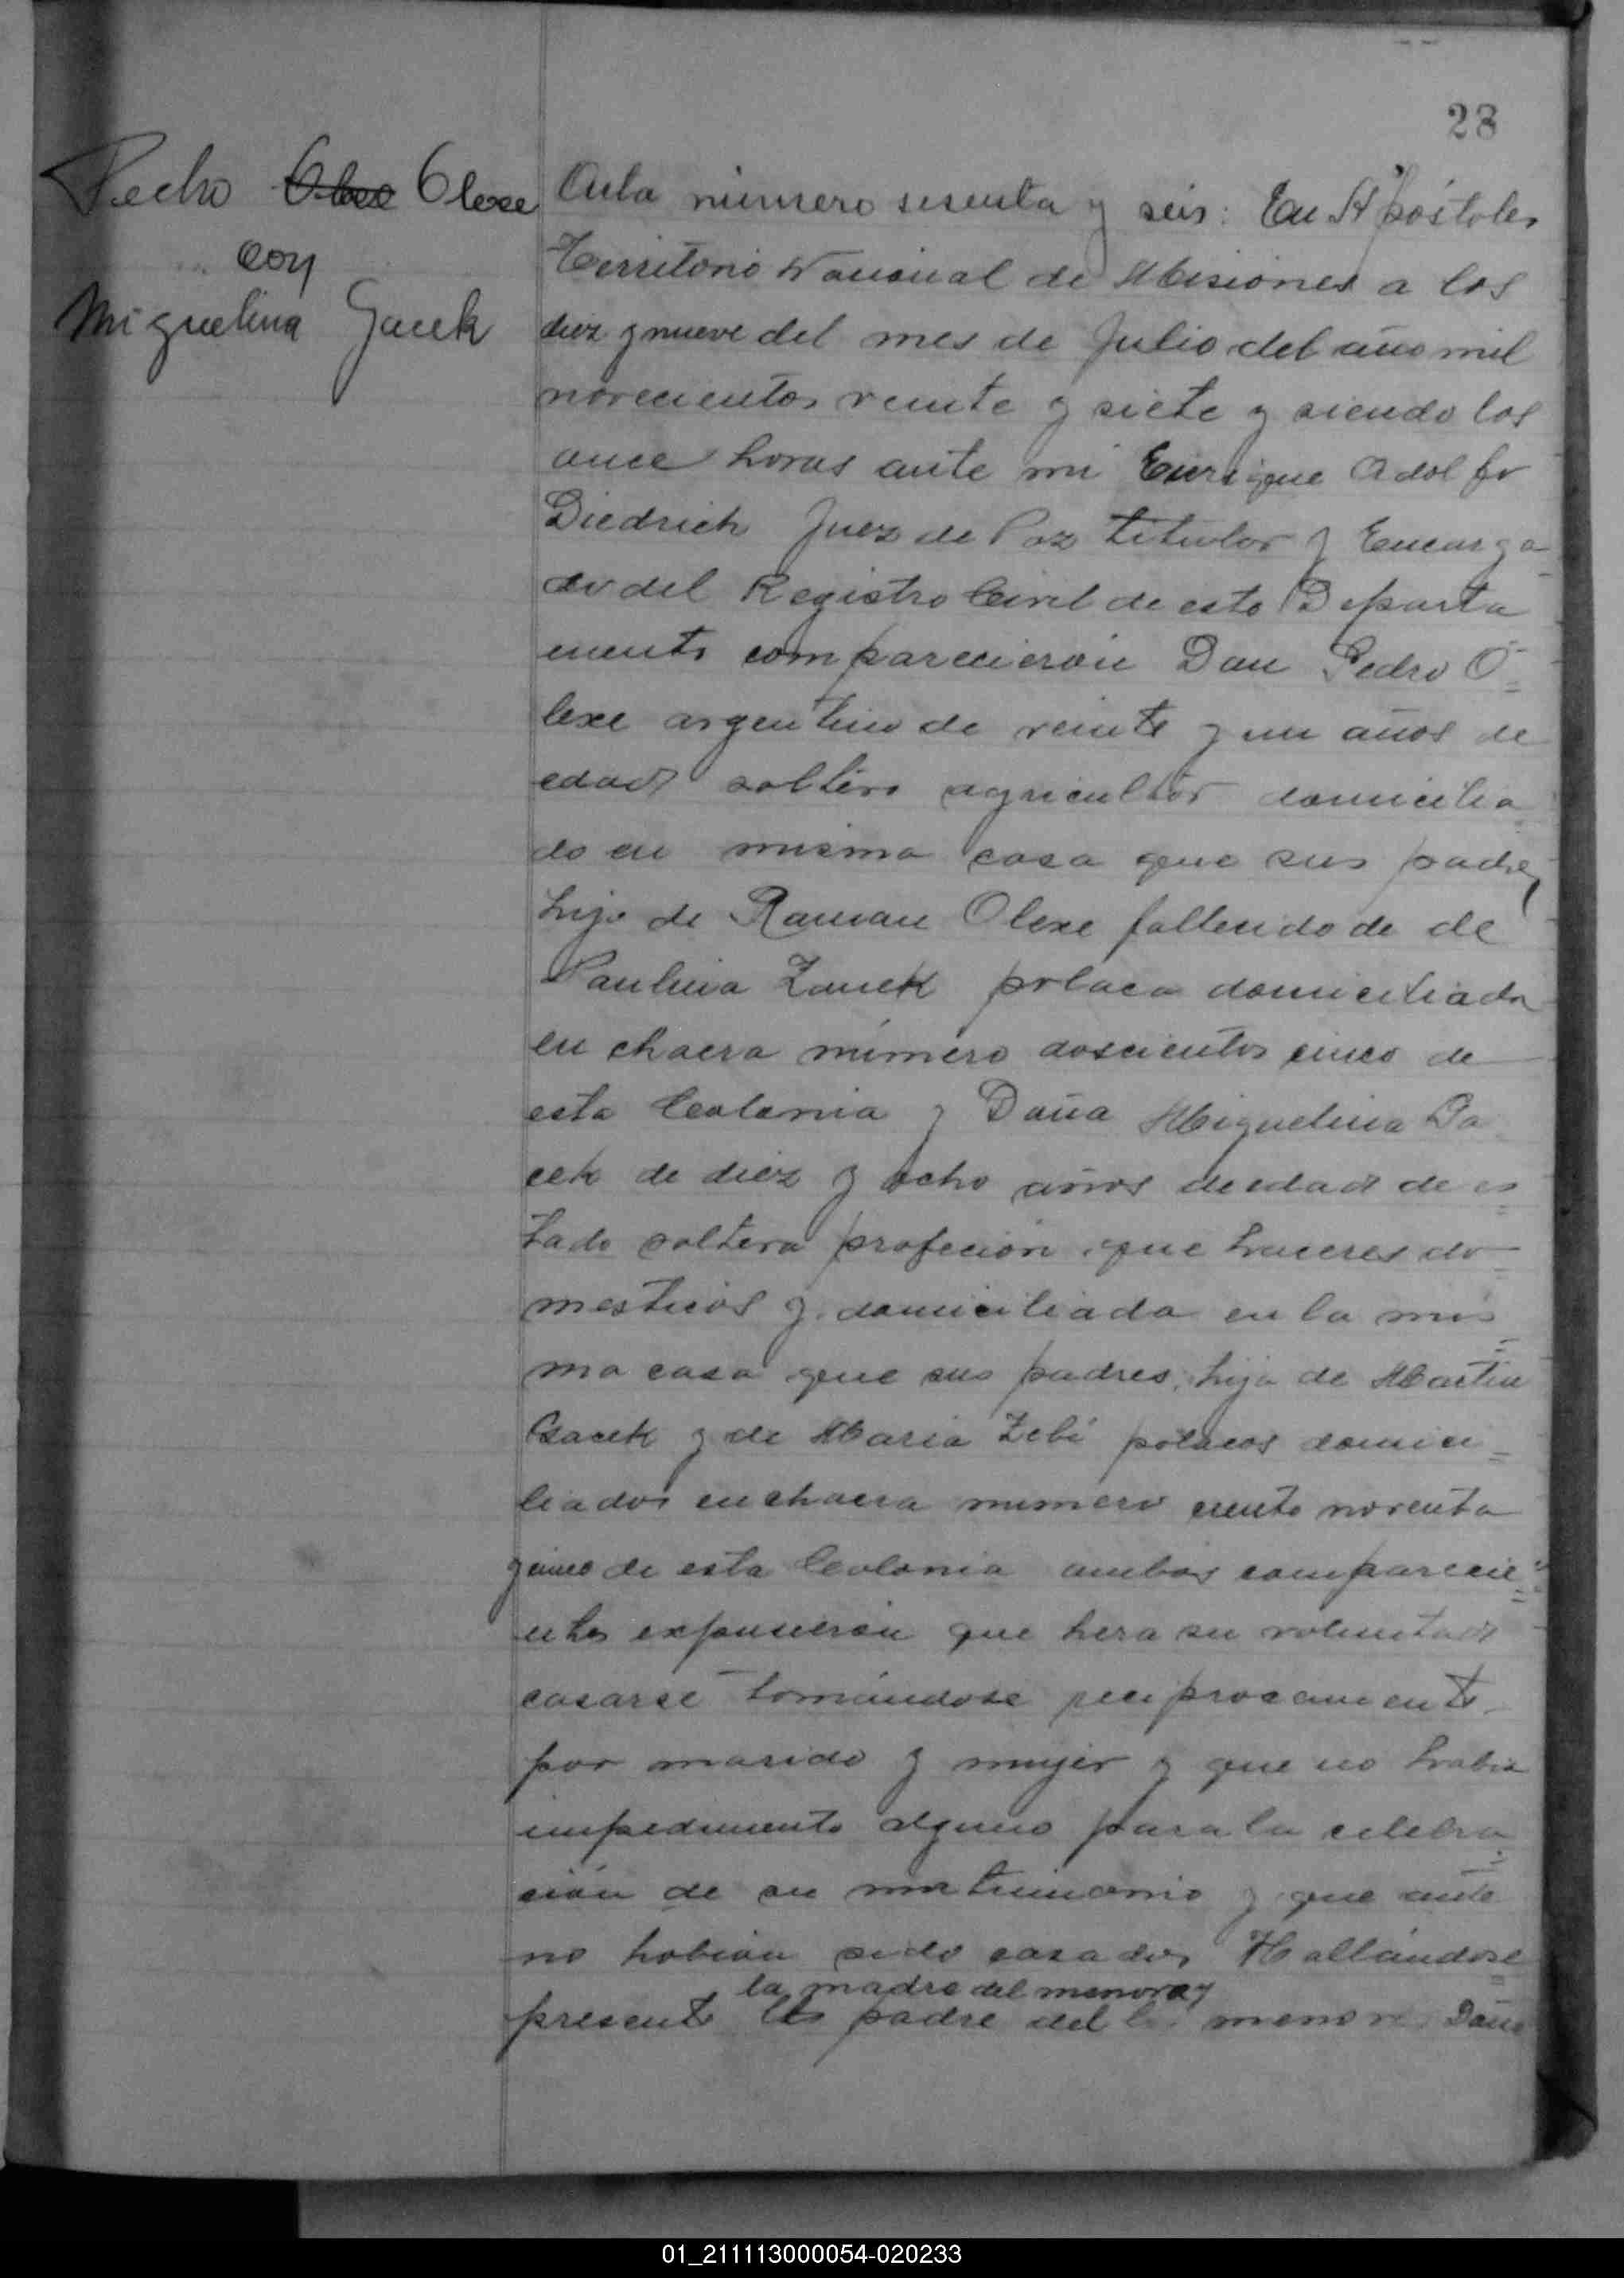 23
Pedro Olexe Olexe
con
Miguelina Gacek
Acta número sesenta y seis: En Apóstoles
Territorio Nacional de Misiones a los
diez y nueve del mes de Julio del año mil
novecientos veinte y siete y siendo las
once horas ante mi Enrique Adolfo
Diedrich Juez de Paz titular y Encarga-
do del Registro Civil de este Departa
mento comparecieron Don Pedro O=
lexe argentino de veinte y un años de
edad soltero agricultor domicilia
do en misma casa que sus padres,
hijo de Roman Olexe fallecido de de
Paulina Zanek polaca domiciliada
en chacra número doscientos cinco de
esta Colonia y Doña Miguelina Ga
cek de diez y ocho años de edad de es=
tado soltera profeción que haceres do=
mesticos y domiciliada en la mis=
ma casa que sus padres, hija de Martin
Gacek y de Maria Zebi polacos domici=
liados en chacra número ciento noventa
y cinco de esta Colonia ambos comparecie=
ntes expusieron que hera su voluntad
casarse tomándose reciprocamente
por marido y mujer y que no habia
impedimento alguno para la celebra=
ción de su matrimonio y que ante
no habian sido casados Hallándose
la madre del menor y
presente los padre del la menor Doña
01_211113000054-020233